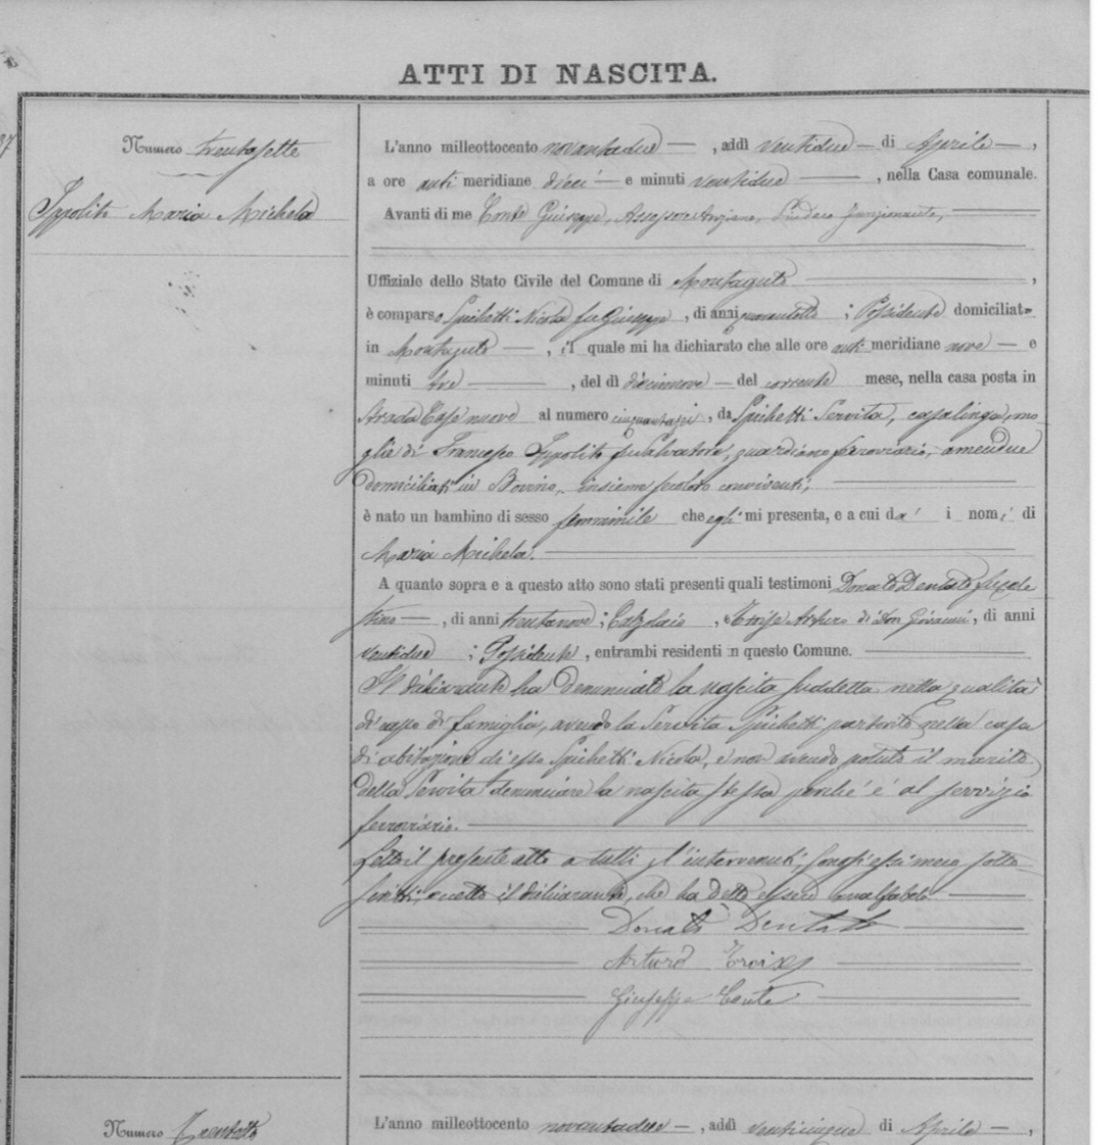 ATTI DI NASCITA.
37
Numero trentasette
Ippolito Maria Michela
L'anno milleottocento novantadue — , addì ventidue — di Aprile — ,
a ore anti meridiane dieci — e minuti ventidue — , nella Casa comunale.
Avanti di me Conte Giuseppe, Assessore Anziano, Sindaco funzionante,
Uffiziale dello Stato Civile del Comune di Montaguto ,
è comparso Spichetti Nicola fu Giuseppe , di anni quarantotto ; Possidente domiciliato
in Montaguto — , il quale mi ha dichiarato che alle ore anti meridiane nove — e
minuti tre — , del dì diciannove — del corrente mese, nella casa posta in
Strada Case nuove al numero cinquantasei , da Spichetti Servita, casalinga, mo
glie di Francesco Ippolito fu Salvatore, guardiano ferroviario, amendue
domiciliati in Bovino, insieme conviventi,
è nato un bambino di sesso femminile che egli mi presenta, e a cui dà i nomi di
Maria Michela.
A quanto sopra e a questo atto sono stati presenti quali testimoni Donato Dentato fu Cele
stino — , di anni trentanove ; Calzolaio , e Troise Arturo di Don Giovanni , di anni
ventidue ; Possidente , entrambi residenti in questo Comune.
Il dichiarante ha denunciato la nascita suddetta nella qualità
di capo di famiglia, avendo la Servita Spichetti partorito nella casa
di abitazione di esso Spichetti Nicola, e non avendo potuto il marito
della Servita denunciare la nascita stessa perché è al servizio
ferroviario.
Letto il presente atto a tutti gl'intervenuti, sonosi essi meco sotto
scritti, eccetto il dichiarante, che ha detto essere analfabeta
Donato Dentato
Arturo Troise
Giuseppe Conte
Numero Trentotto
L'anno milleottocento novantadue — , addì venticinque di Aprile — ,